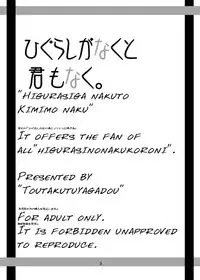 ひぐらしがなくと
君もなく。
"Higurasiga nakuto
Kimimo naku"
It offers the fan of
all"higurasinonakukoroni".
Presented by
"Toutakutuyagadou"
For adult only.
It is forbidden unapproved
to reproduce.